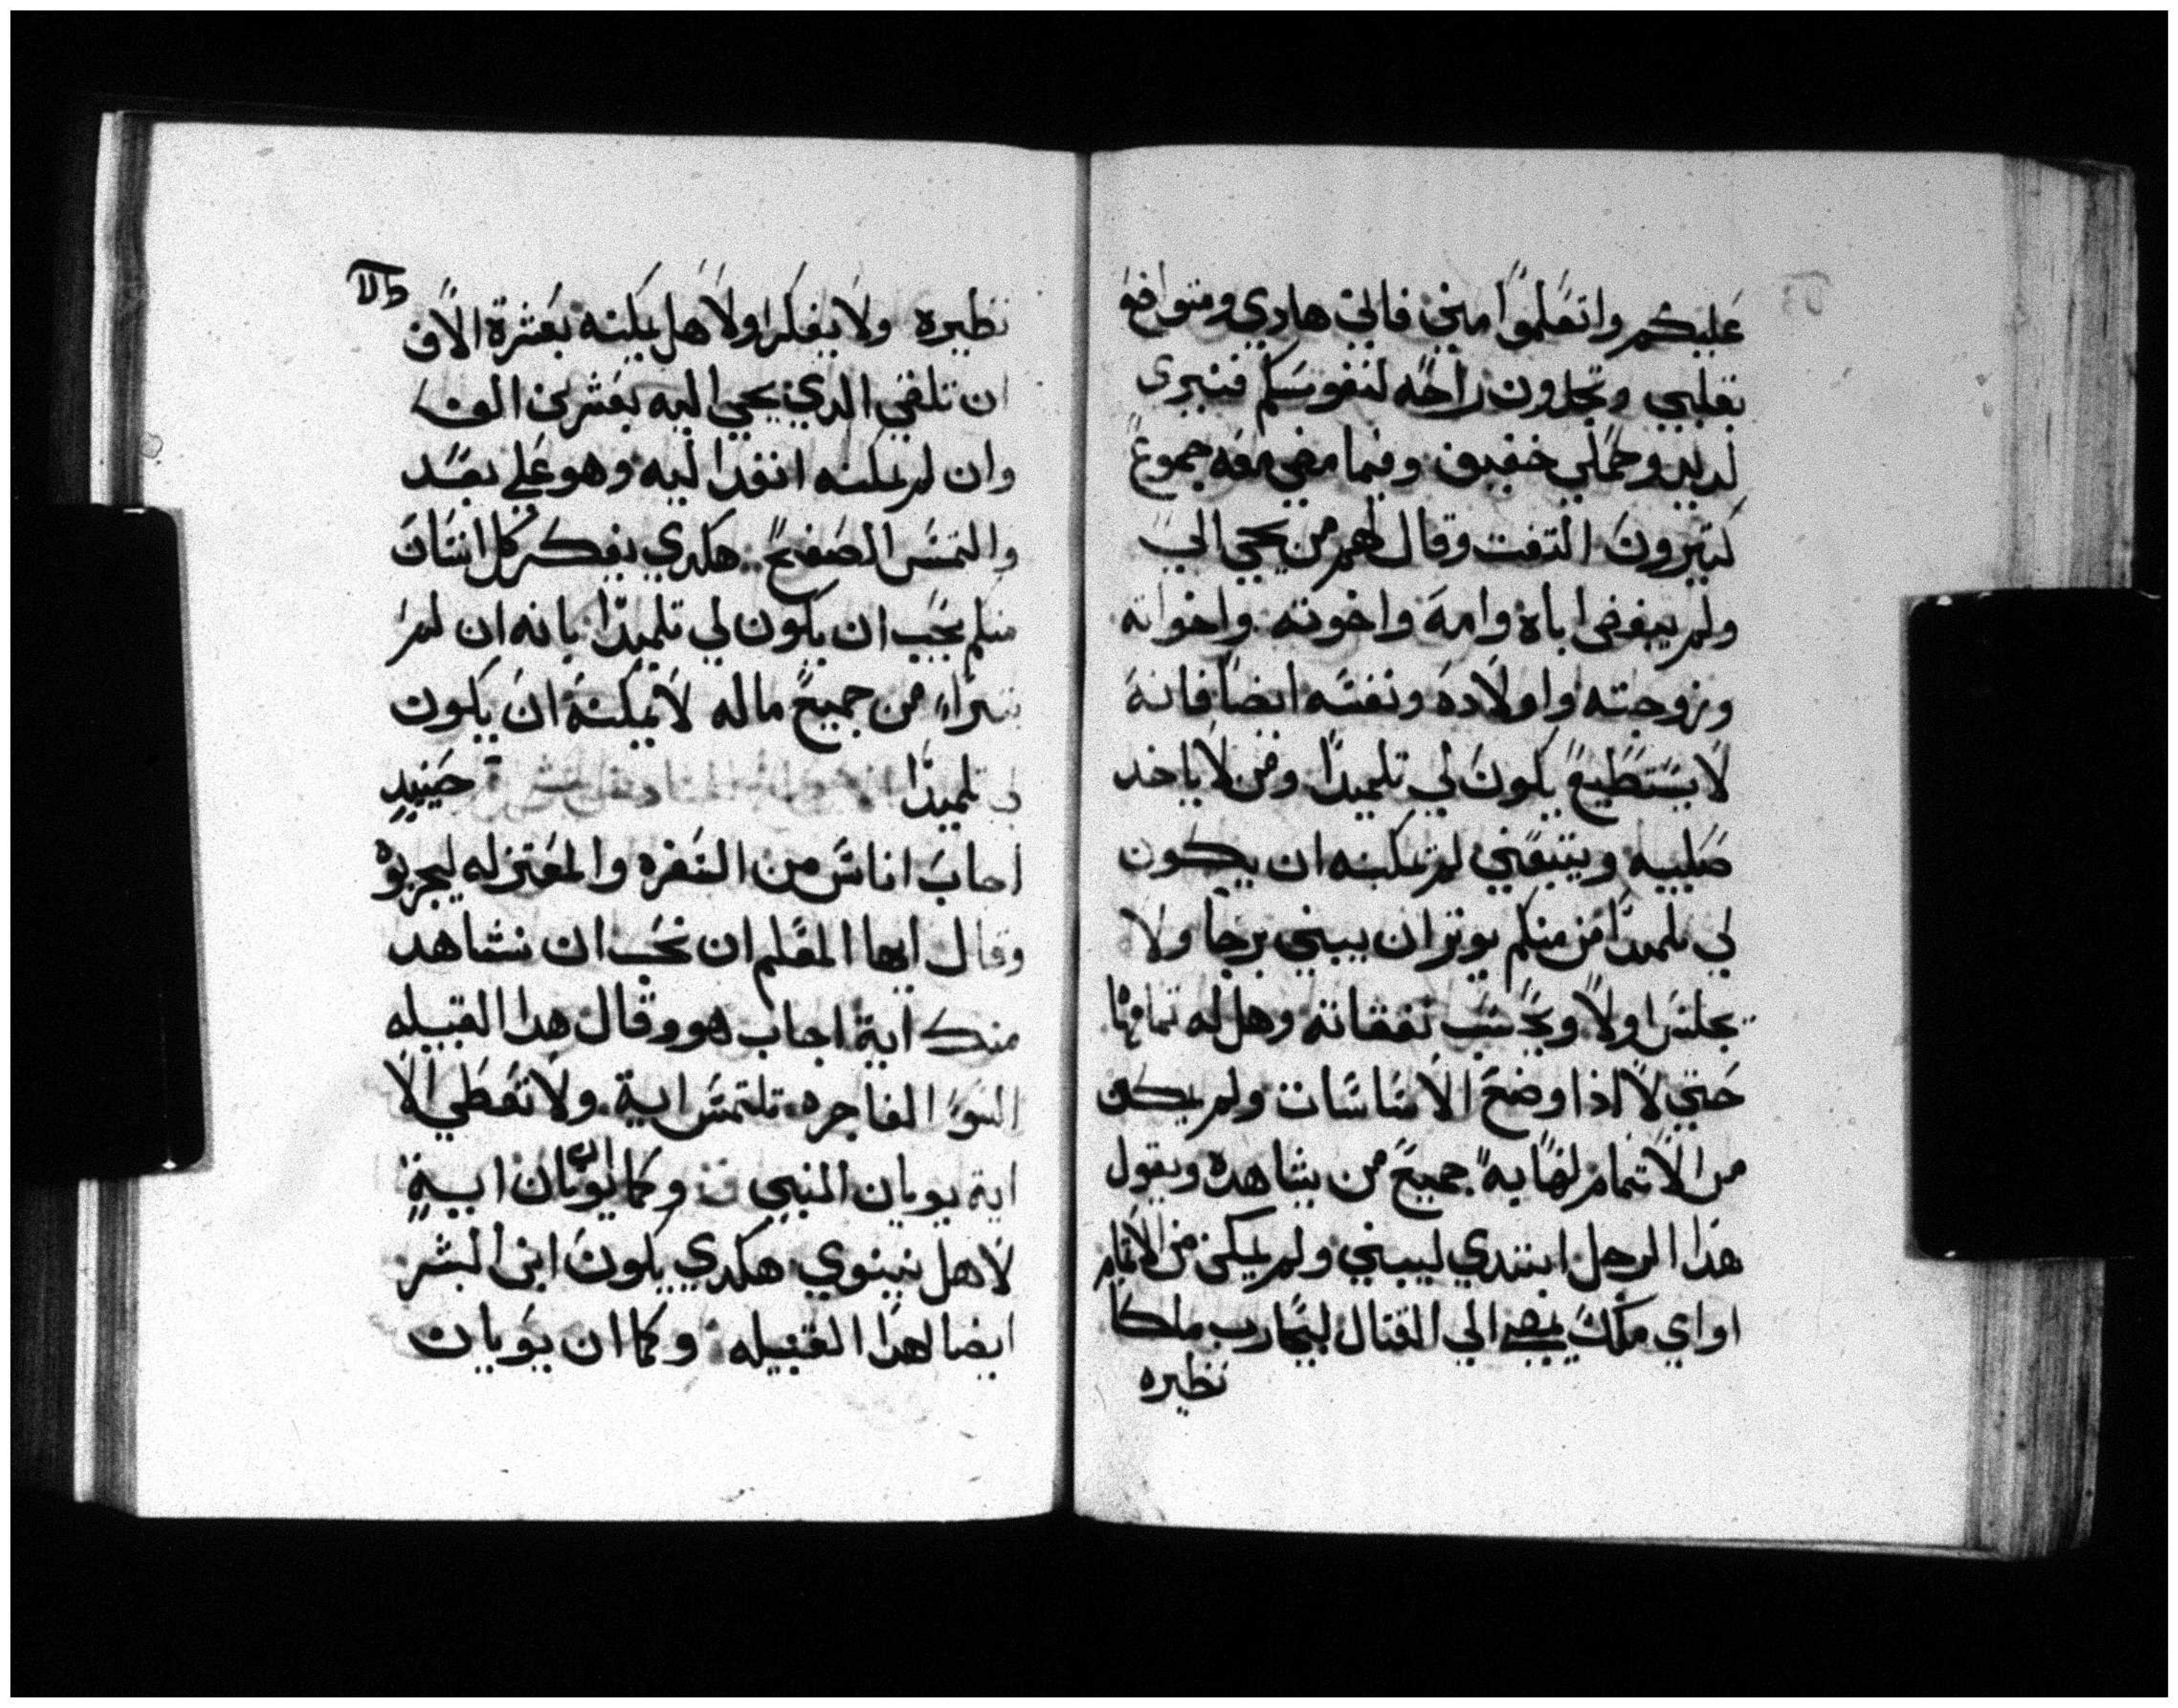 عليكم واتعلموا مني فاني هادي ومتواضع
بقلبي وتجدون راحه لنفوسكم فنيري
لديد وحملي خفيف وفيما مضي معه جموع
كتيرون التفت وقال لهم من يجي الي
ولم يبغض اباه وامه واخوته واخواته
وزوجته واولاده ونفسه ايضا فانه
لا يستطيع يكون لي تلميدا ومن لا ياخد
صليبه ويتبعني لم يمكنه ان يكون
لي تلميدا من منكم يوتر ان يبني برجا ولا
يجلس اولا ويحسب نفقاته وهل له تمامها
حتي لا اذا وضع الاساسات ولم يمكن
من الاتمام لها به جميع من يشاهده ويقول
هذا الرجل ابتدي ليبني ولم يمكن من الاتمام
او اي ملك يمضي الي القتال ليحارب ملكا
نظيره
نظيره ولا يفكر اولا هل يمكنه بعشرة الاف
ان تلقي الدي يجي اليه بعشرين الف
وان لم يمكنه انفد اليه وهو علي بعد
والتمس الصفح هكدي يفكر كل انسان
منكم يحب ان يكون لي تلميدا بانه ان لم
يتبرا من جميع ماله لا يمكنه ان يكون
لي تلميدا حينيد
اجاب اناس من السفره والمعتزله ليجربوه
وقال ايها المعلم ان نحب ان نشاهد
منك اية اجاب هو وقال هدا القبيله
السو الفاجره تلتمس اية ولا تعطي الا
اية يويان النبي وكما يويان اية
لاهل نينوي هكدي يكون ابن البشر
ايضا لهدا القبيله وكما ان يويان